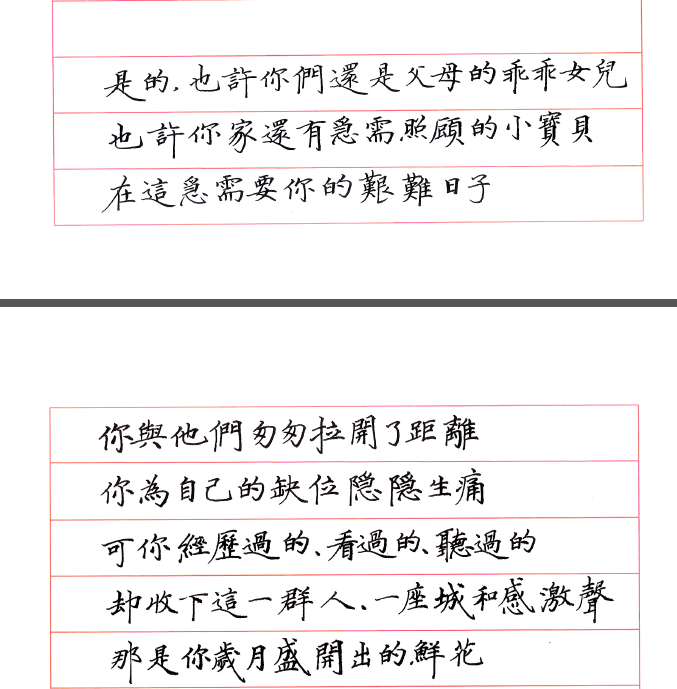 是的,也許你們還是父母的乖乖女兒
也許你家還有急需照顧的小寶貝
在這急需要你的艱難日子
你與他們匆匆拉開了距離
你為自己的缺位隱隱生痛
可你經歷過的、看過的、聽過的
却收下這一群人、一座城和感激聲
那是你歲月盛開出的鮮花